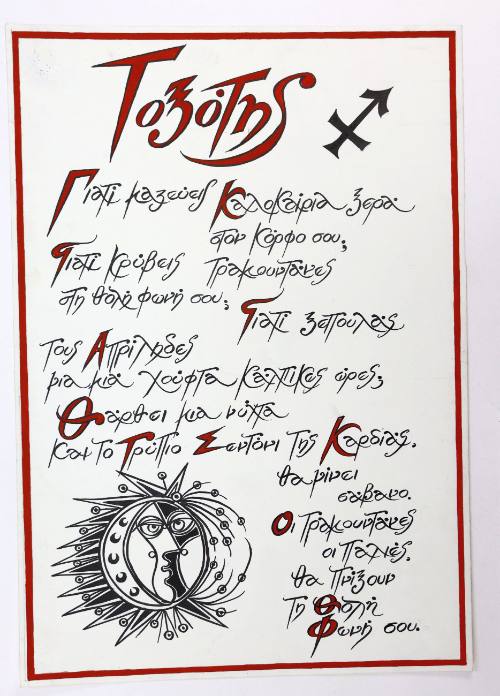 Τοξότης
Γιατί μαζεύεις Καλοκαίρια ξερά
στον Κόρφο σου;
Γιατί Κρύβεις Τραμουντάνες
στη θολή φωνή σου;
Γιατί ξεπουλάς
τους Απρίληδες
για μιά χούφτα κάλπικες ώρες;
Θάρθει μια νύχτα
και το Τρύπιο Σεντόνι της Καρδιάς.
θα γίνει
σάβανο.
Οι Τραμουντάνες
οι Παλιές.
θα Πνίξουν
Τη Θολή
Φωνή σου.